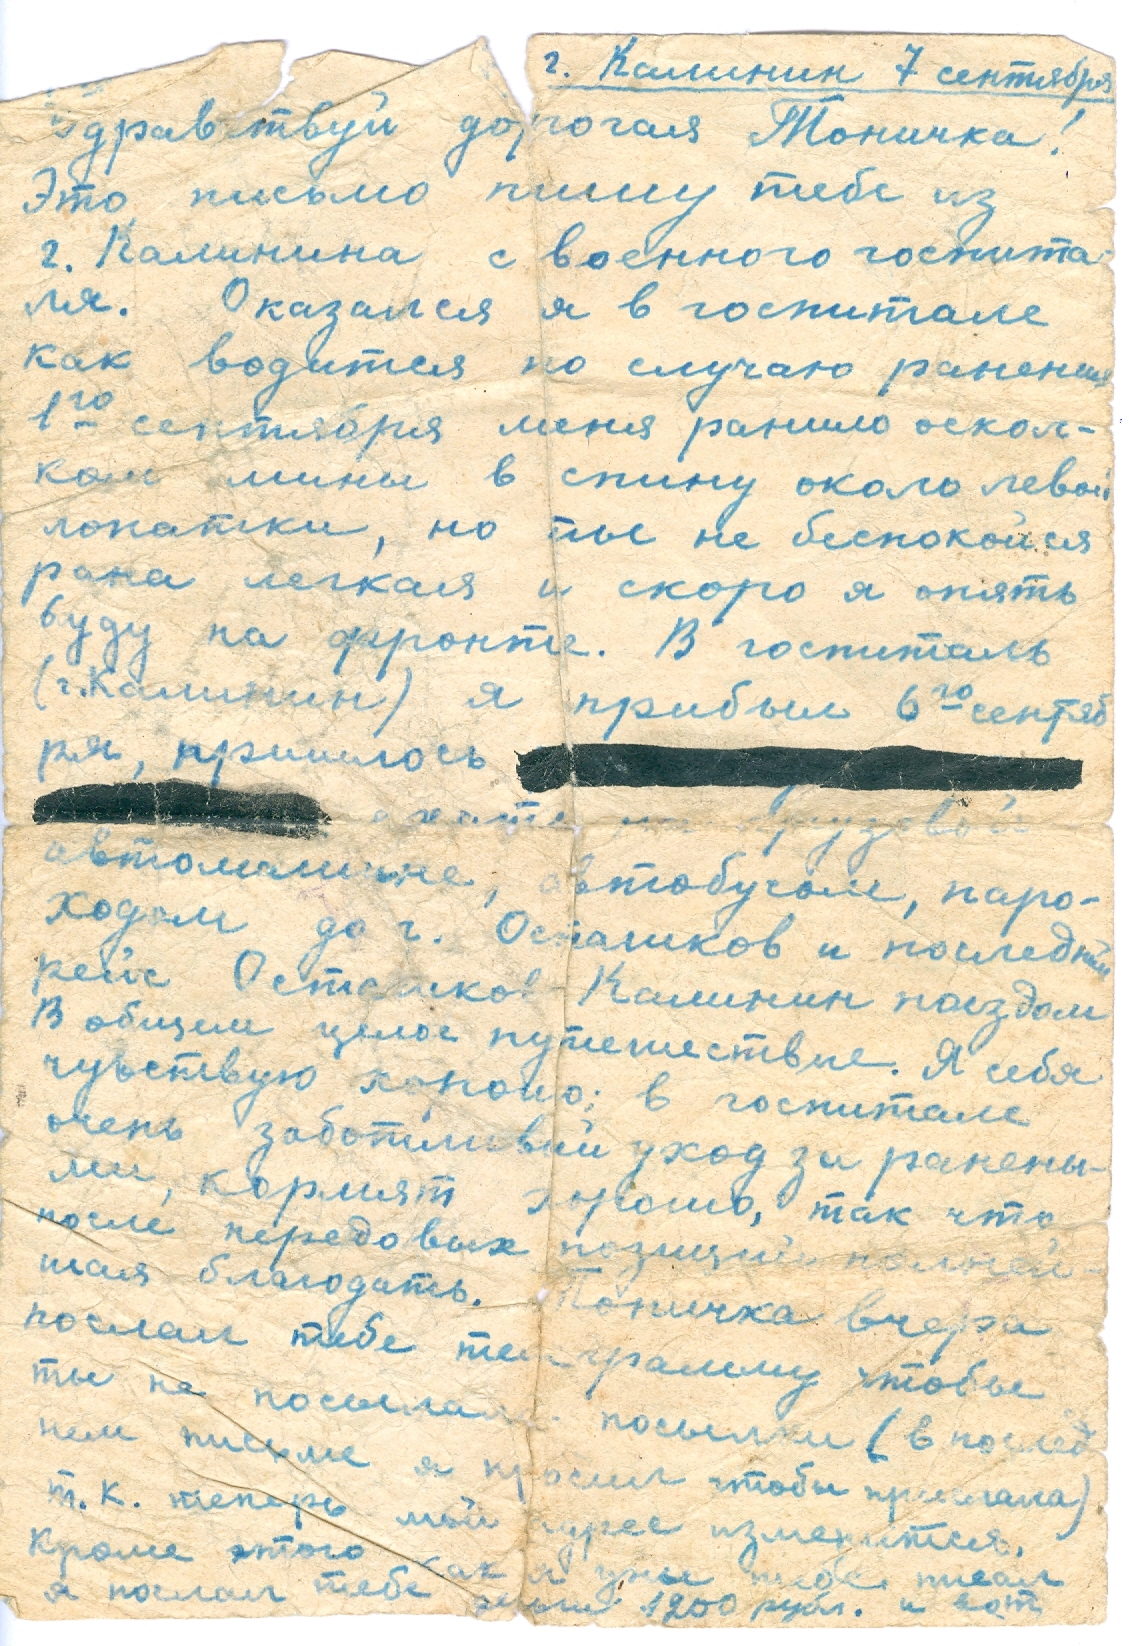 г. Калинин 7 сентября
Здравствуй дорогая Тоничка!
Это письмо пишу тебе из
г. Калинина с военного госпита-
ля. Оказался я в госпитале
как водится по случаю ранения
1го сентября меня ранило оскол-
ком мины в спину около левой
лопатки, но ты не беспокойся
рана легкая и скоро я опять
буду на фронте. В госпиталь
(г. Калинин) я прибыл 6го сентяб
ря, пришлось
ехать на грузовой
автомашине, автобусом, паро-
ходом до г. Осташков и последний
рейс Осташков-Калинин поездом
В общем целое путешествие. Я себя
чувствую хорошо; в госпитале
очень заботливый уход за ранены-
ми, кормят хорошо, так что
после передовых позиций полней-
шая благодать. Тоничка вчера
послал тебе телеграмму чтобы
ты не посылала посылки (в послед
нем письме я просил чтобы прислала)
т.к. теперь мой адрес изменится.
Кроме этого как я уже тебе писал
я послал тебе деньги 1200 рубл. и вот